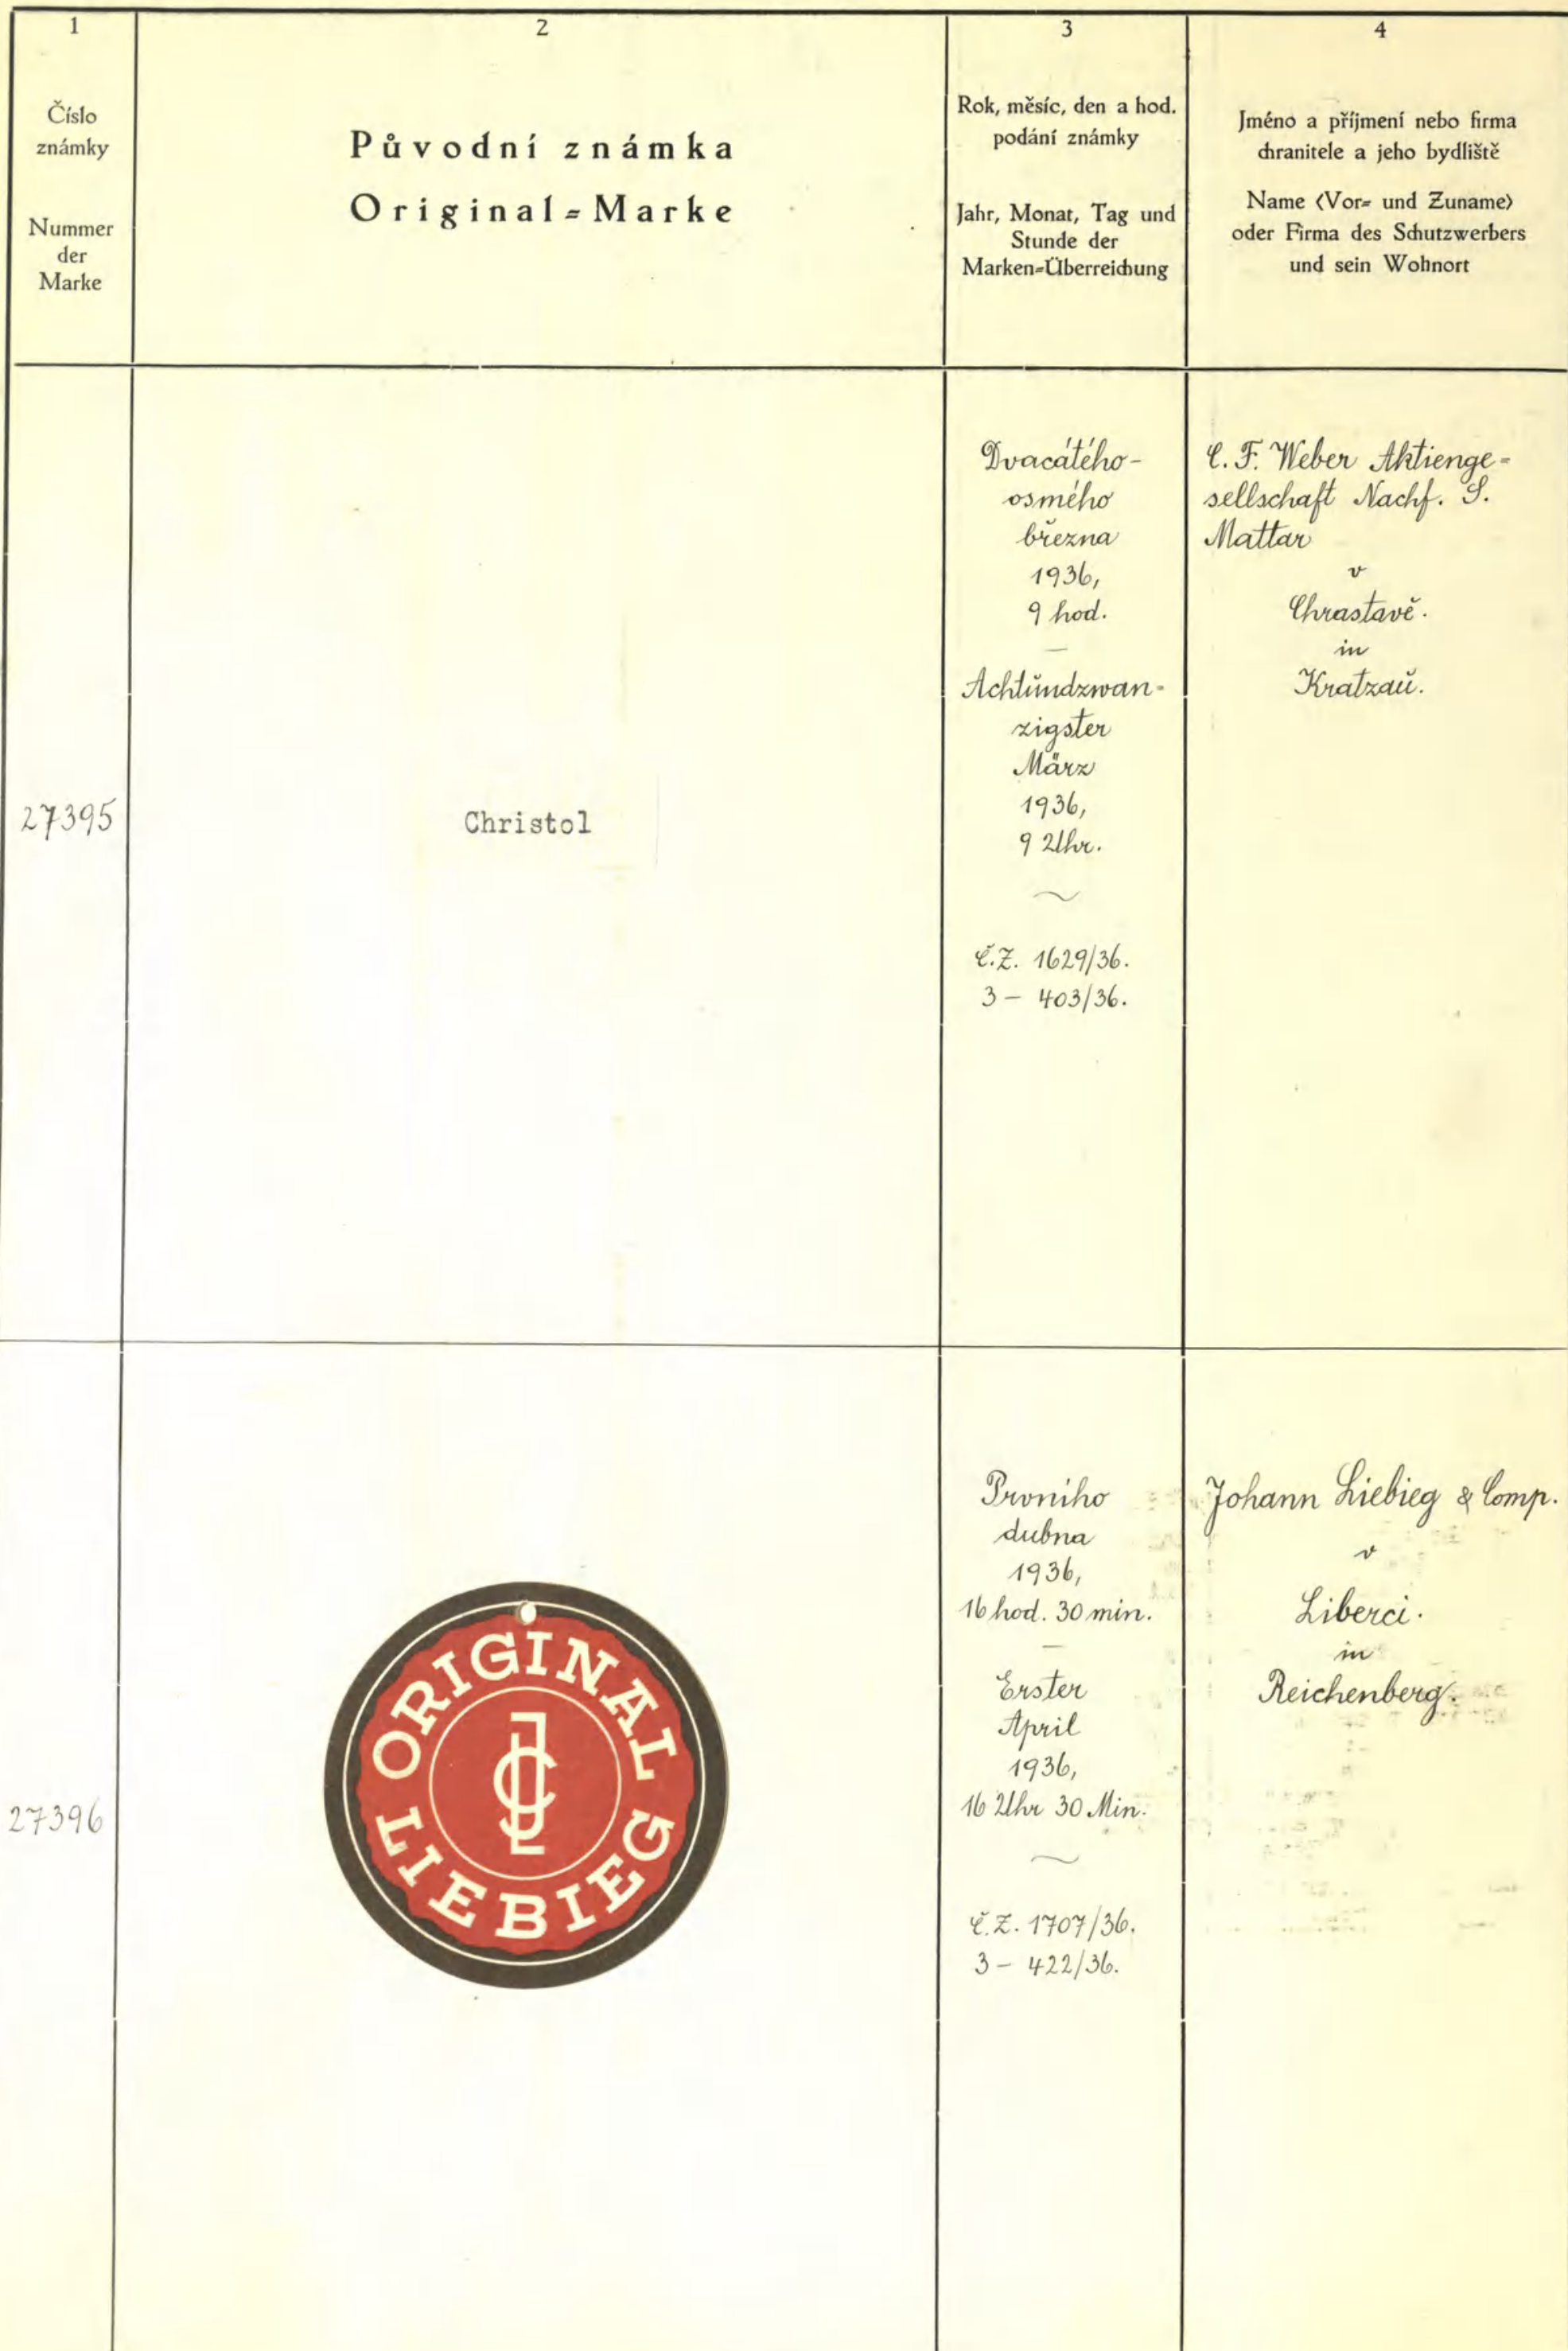 1
Číslo
známky
Nummer
der
Marke
2
Původní známka
Original-Marke
3
Rok, měsíc, den a hod.
podání známky
Jahr, Monat, Tag und
Stunde der
Marken-Überreichung
4
Jméno a příjmení nebo firma
chranitele a jeho bydliště
Name (Vor- und Zuname)
oder Firma des Schutzwerbers
und sein Wohnort
27395
Christol
Dvacátého-
osmého
března
1936,
9 hod.
—
Achtundzwan-
zigster
März
1936,
9 Uhr.
~
Č.Z. 1629/36.
3 – 403/36.
C. F. Weber Aktienge-
sellschaft Nachf. S.
Mattar
v
Chrastavě.
in
Kratzau.
27396
ORIGINAL
LIEBIEG
Prvního
dubna
1936,
16 hod. 30 min.
—
Erster
April
1936,
16 Uhr 30 Min.
~
Č.Z. 1707/36.
3 – 422/36.
Johann Liebieg & Comp.
v
Liberci.
in
Reichenberg.